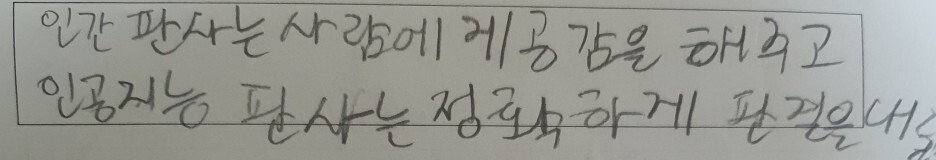 인간 판사는 사람에게 공감을 해주고
인공지능 판사는 정확하게 판결을